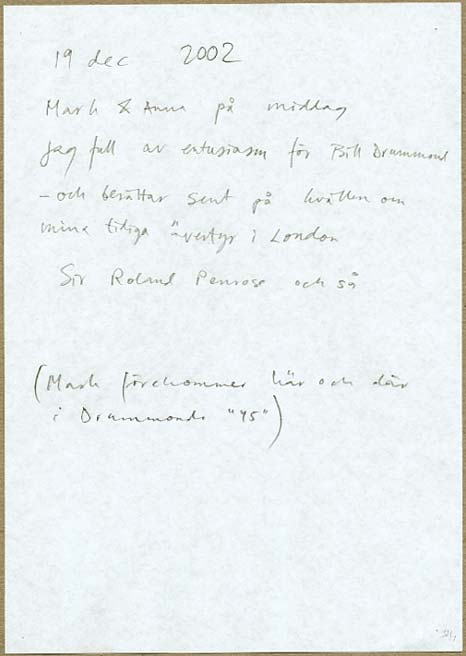 19 dec 2002
Mark & Anna på middag
Jag full av entusiasm för Bill Drummond
- och berättar sent på kvällen om
mina tidiga äventyr i London
Sir Roland Penrose och så
(Mark förekommer här och där
i Drummonds "45")